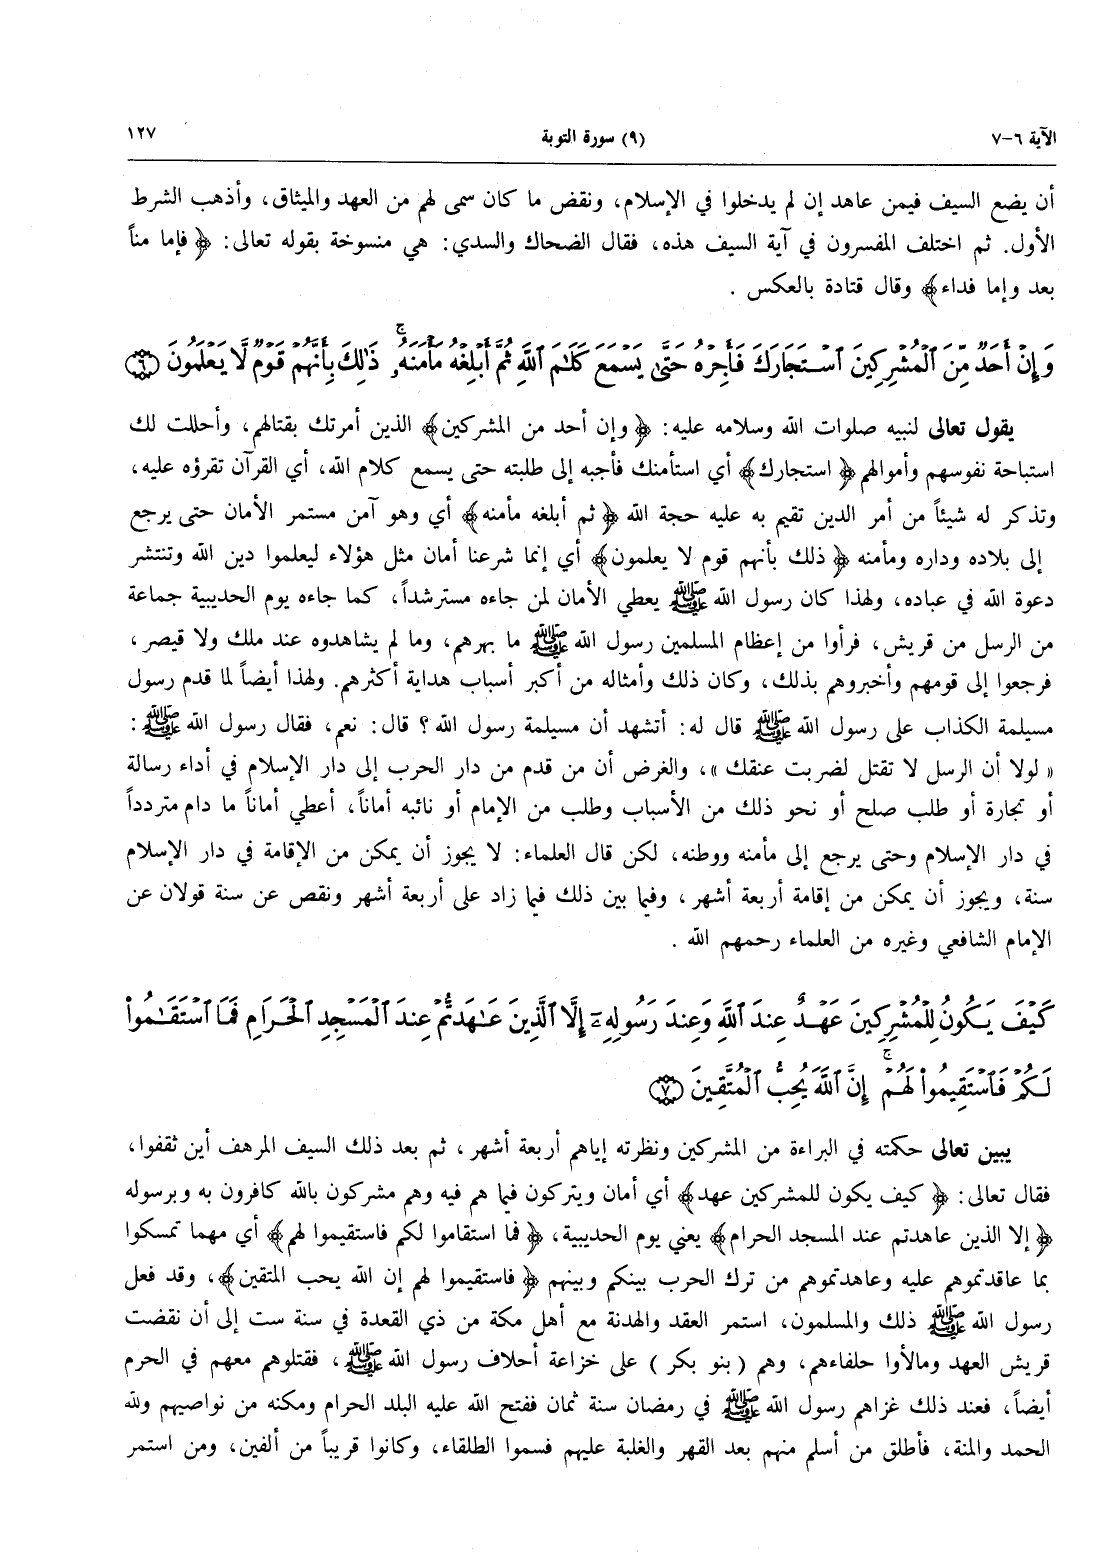 الآية ٦-٧ (٩) سورة التوبة ١٢٧
أن يضع السيف فيمن عاهد إن لم يدخلوا في الإسلام، ونقض ما كان سمى لهم من العهد والميثاق، وأذهب الشرط
الأول. ثم اختلف المفسرون في آية السيف هذه، فقال الضحاك والسدي: هي منسوخة بقوله تعالى: ﴿ فإما مناً
بعد وإما فداء﴾ وقال قتادة بالعكس .
وَإِنْ أَحَدٌ مِّنَ ٱلْمُشْرِكِينَ ٱسْتَجَارَكَ فَأَجِرْهُ حَتَّىٰ يَسْمَعَ كَلَٰمَ ٱللَّهِ ثُمَّ أَبْلِغْهُ مَأْمَنَهُۥ ۚ ذَٰلِكَ بِأَنَّهُمْ قَوْمٌ لَّا يَعْلَمُونَ ﴿٦﴾
يقول تعالى لنبيه صلوات الله وسلامه عليه: ﴿ وإن أحد من المشركين﴾ الذين أمرتك بقتالهم، وأحللت لك
استباحة نفوسهم وأموالهم ﴿ استجارك﴾ أي استأمنك فأجبه إلى طلبته حتى يسمع كلام الله، أي القرآن تقرؤه عليه،
وتذكر له شيئاً من أمر الدين تقيم به عليه حجة الله ﴿ ثم أبلغه مأمنه﴾ أي وهو آمن مستمر الأمان حتى يرجع
إلى بلاده وداره ومأمنه ﴿ ذلك بأنهم قوم لا يعلمون﴾ أي إنما شرعنا أمان مثل هؤلاء ليعلموا دين الله وتنتشر
دعوة الله في عباده، ولهذا كان رسول الله ﷺ يعطي الأمان لمن جاءه مسترشداً، كما جاءه يوم الحديبية جماعة
من الرسل من قريش، فرأوا من إعظام المسلمين رسول الله ﷺ ما بهرهم، وما لم يشاهدوه عند ملك ولا قيصر،
فرجعوا إلى قومهم وأخبروهم بذلك، وكان ذلك وأمثاله من أكبر أسباب هداية أكثرهم. ولهذا أيضاً لما قدم رسول
مسيلمة الكذاب على رسول الله ﷺ قال له: أتشهد أن مسيلمة رسول الله ؟ قال: نعم، فقال رسول الله ﷺ :
« لولا أن الرسل لا تقتل لضربت عنقك »، والغرض أن من قدم من دار الحرب إلى دار الإسلام في أداء رسالة
أو تجارة أو طلب صلح أو نحو ذلك من الأسباب وطلب من الإمام أو نائبه أماناً، أعطي أماناً ما دام متردداً
في دار الإسلام وحتى يرجع إلى مأمنه ووطنه، لكن قال العلماء: لا يجوز أن يمكن من الإقامة في دار الإسلام
سنة، ويجوز أن يمكن من إقامة أربعة أشهر، وفيما بين ذلك فيما زاد على أربعة أشهر ونقص عن سنة قولان عن
الإمام الشافعي وغيره من العلماء رحمهم الله .
كَيْفَ يَكُونُ لِلْمُشْرِكِينَ عَهْدٌ عِندَ ٱللَّهِ وَعِندَ رَسُولِهِۦٓ إِلَّا ٱلَّذِينَ عَٰهَدتُّمْ عِندَ ٱلْمَسْجِدِ ٱلْحَرَامِ فَمَا ٱسْتَقَٰمُوا۟
لَكُمْ فَٱسْتَقِيمُوا۟ لَهُمْ ۚ إِنَّ ٱللَّهَ يُحِبُّ ٱلْمُتَّقِينَ ﴿٧﴾
يبين تعالى حكمته في البراءة من المشركين ونظرته إياهم أربعة أشهر، ثم بعد ذلك السيف المرهف أين ثقفوا،
فقال تعالى: ﴿ كيف يكون للمشركين عهد﴾ أي أمان ويتركون فيما هم فيه وهم مشركون بالله كافرون به وبرسوله
﴿ إلا الذين عاهدتم عند المسجد الحرام﴾ يعني يوم الحديبية، ﴿ فما استقاموا لكم فاستقيموا لهم﴾ أي مهما تمسكوا
بما عاقدتموهم عليه وعاهدتموهم من ترك الحرب بينكم وبينهم ﴿ فاستقيموا لهم إن الله يحب المتقين﴾، وقد فعل
رسول الله ﷺ ذلك والمسلمون، استمر العقد والهدنة مع أهل مكة من ذي القعدة في سنة ست إلى أن نقضت
قريش العهد ومالأوا حلفاءهم، وهم ( بنو بكر ) على خزاعة أحلاف رسول الله ﷺ، فقتلوهم معهم في الحرم
أيضاً، فعند ذلك غزاهم رسول الله ﷺ في رمضان سنة ثمان ففتح الله عليه البلد الحرام ومكنه من نواصيهم ولله
الحمد والمنة، فأطلق من أسلم منهم بعد القهر والغلبة عليهم فسموا الطلقاء، وكانوا قريباً من ألفين، ومن استمر